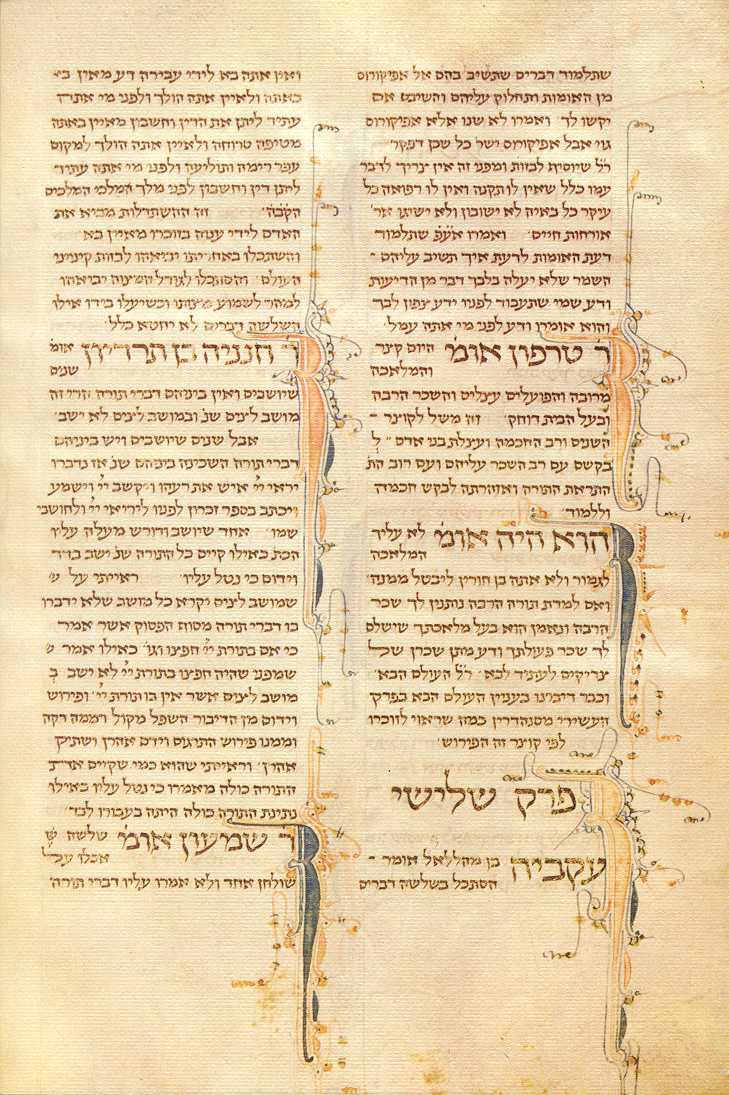 שתלמוד דברים שתשיב בהם אל אפיקורוס
מן האומות ותחלוק עליהם והשיבם אם
יקשו לך ואמרו לא שנו אלא אפיקורוס
גוי אבל אפיקורוס ישר׳ כל שכן דפקר׳
ר״ל שיוסיף לבזות ומפני זה אין צריך לדבר
עמו כלל שאין לו תקנה ואין לו רפואה כל
עיקר כל באיה לא ישובון ולא ישיגו אר׳
אורחות חיים׳ ואמרו אע״פ שתלמוד
דעת האומות לדעת איך תשיב עליהם
השמר שלא יעלה בלבך דבר מן הדיעות
ודע שמי שתעבוד לפניו ידע צפון לבך
והוא אומרו ודע לפני מי אתה עמל׳
ר׳ טרפון אומ׳ היום קצר
והמלאכה
מרובה והפועלים עצלים והשכר הרבה
ובעל הבית דוחק׳ זה משל לקוצר
השנים ורב החכמה ועצלת בני אדם
בקשם עם רב השכר עליהם ועם רוב הת
התראת התורה ואזהרתה לבקש חכמה
וללמוד׳
הוא היה אומ׳ לא עליך
המלאכה
לגמור ולא אתה בן חורין ליבטל ממנה
ואם למדת תורה הרבה נותנין לך שכר
הרבה ונאמן הוא בעל מלאכתך שישלם
לך שכר פעולתך ודע מתן שכרן של
צדיקים לעתיד לבא׳ ר״ל העולם הבא׳
וכבר דיברנו בענין העולם הבא בפרק
העשירי מסנהדרין במה שראוי לזוכרו
לפי קוצר זה הפירוש׳
פרק שלישי
עקביה בן מהללאל אומר
הסתכל בשלשה דברים
ואין אתה בא לידי עבירה דע מאין ב׳
באתה ולאין אתה הולך ולפני מי אתה
עתיד ליתן את הדין וחשבון מאין באתה
מטיפה סרוחה ולאין אתה הולך למקום
עפר רימה ותוליעה ולפני מי אתה עתיד
ליתן דין וחשבון לפני מלך המלכי המלכים
הק׳ב׳ה׳ זה ההשתדלות מביא את
האדם לידי ענוה בזוכרו מאין בא׳
והשתכלו באחריתו יביאהו לבזות קיניני
העולם והסתכלו לגודל המצוה יביאהו
למהר לשמוע מצותו וכשיעלו בידו אילו
השלשה דברים לא יחטא כלל׳
ר׳ חנניה בן תרדיון אומ׳
שנים
שיושבים ואין ביניהם דברי תורה הרי זה
מושב לצים שנ׳ ובמושב לצים לא ישב׳
אבל שנים שיושבים ויש ביניהם
דברי תורה השכינה ביניהם שנ׳ אז נדברו
יראי יי׳ איש את רעהו ויקשב יי׳ וישמע
ויכתב בספר זכרון לפניו ליריאי יי׳ ולחושבי
שמו׳ אחד שיושב ודורש מעלה עליו
הכת׳ כאילו קיים כל התורה שנ׳ ישב בדד
וידום כי נטל עליו׳ ראייתי על ש׳
שמושב לצים יקרא כל מושב שלא ידברו
בו דברי תורה מסוף הפסוק אשר אמר
כי אם בתורת יי׳ חפצו וגו׳ כאילו אמר ש׳
שמפני שהיה חפצו בתורת יי׳ לא ישב ב׳
מושב לצים אשר אין בו תורת יי׳ ופירוש
וידום מן הדיבור השפל מקול דממה דקה
וממנו פירוש התרגום וידם אהרן ושתיק
אהרן׳ וראייתי שהוא כמי שקיים את
התורה כולה מאמרו כי נטל עליו כאילו
נתינת התורה כולה היתה בעבורו לבד׳
ר׳ שמעון אומ׳ שלשה ש׳
אכלו על
שולחן אחד ולא אמרו עליו דברי תורה׳